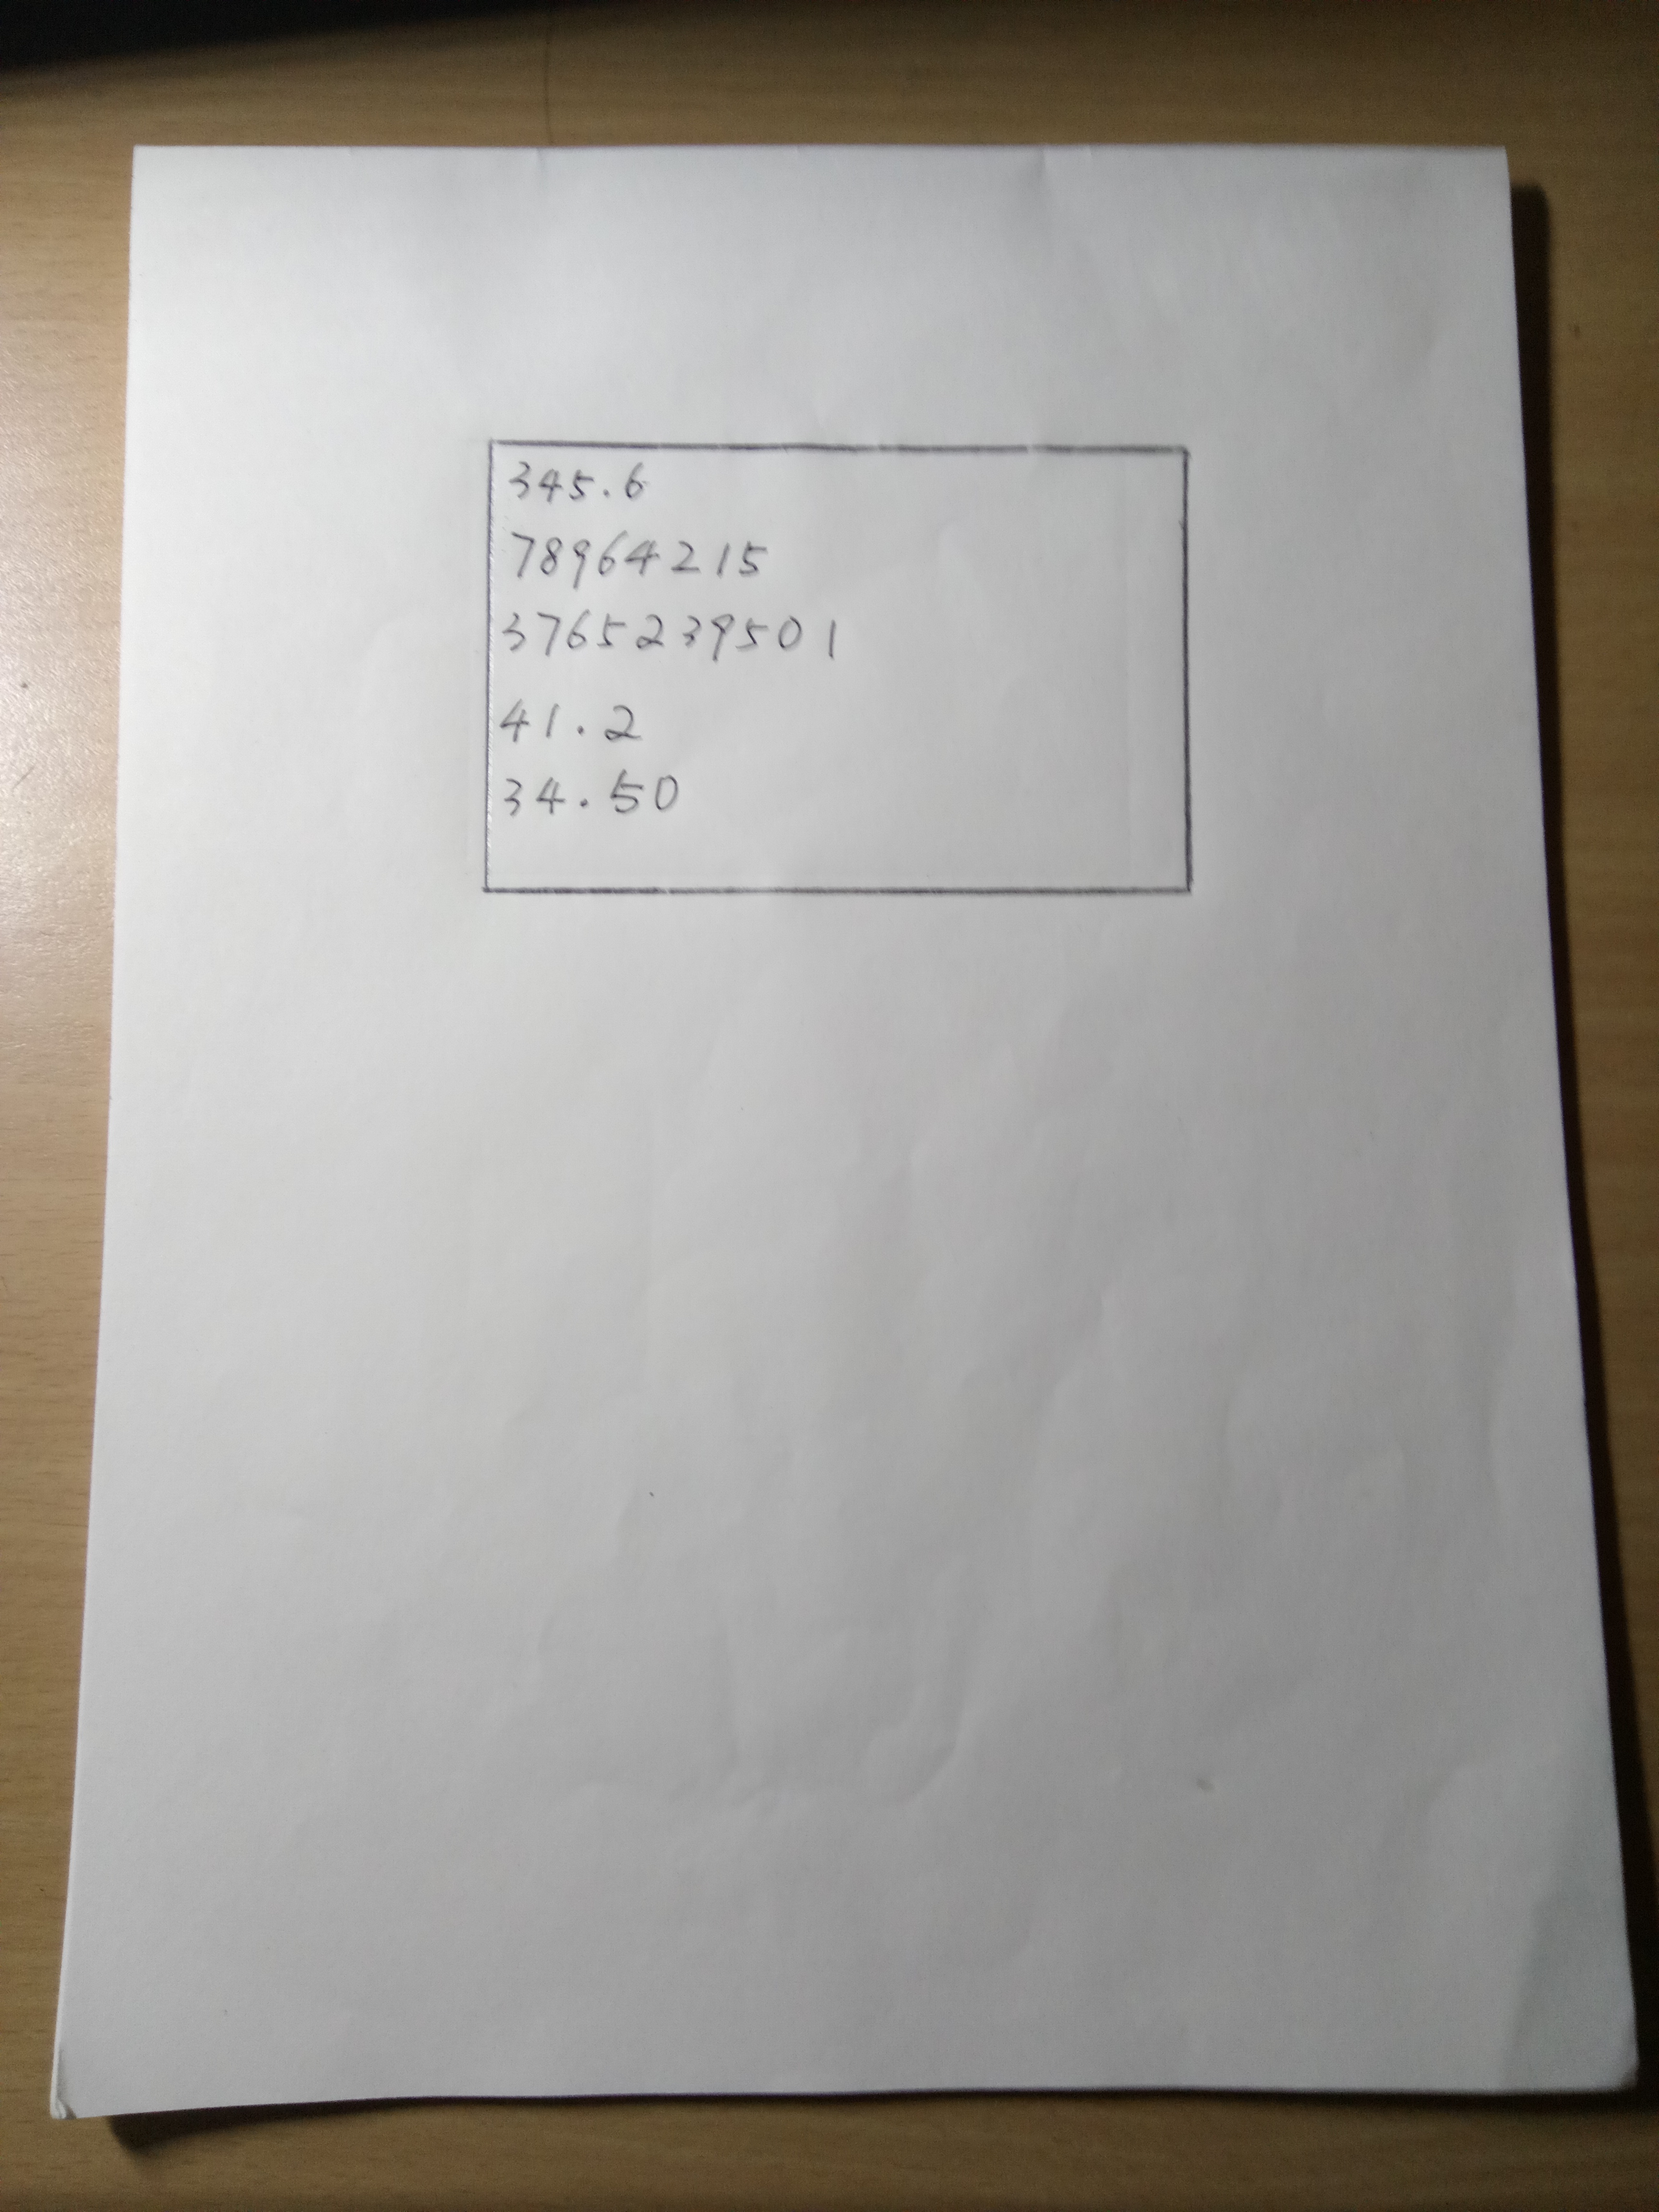 345.6
78964215
3765239501
41.2
34.50